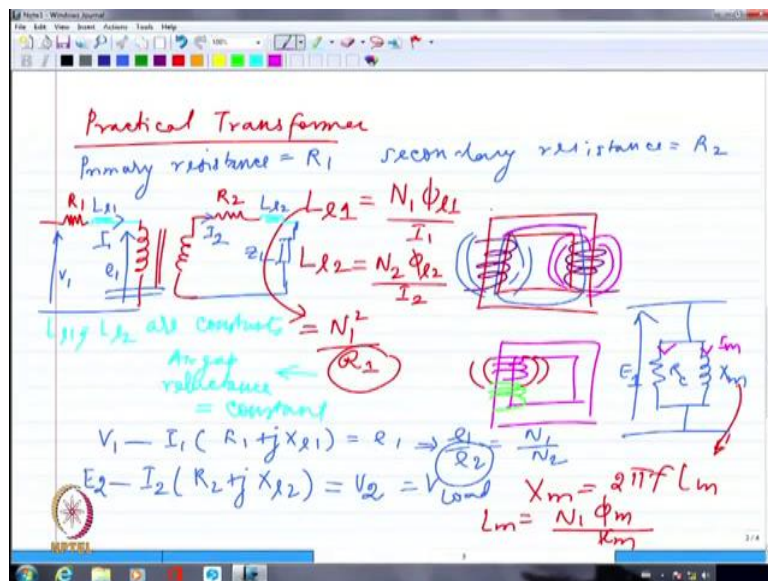 Note1 - Windows Journal
File Edit View Insert Actions Tools Help
Practical Transformer
Primary resistance = R1 secondary resistance = R2
R1 Ll1 R2 Ll2
I1 I2
V1 e1 ZL
Ll1 = N1 φl1 / I1
Ll2 = N2 φl2 / I2
Ll1 & Ll2 are constants
= N1² / R1
Air gap
reluctance
= constant
E1 Rc Im Xm
V1 - I1 ( R1 + j Xl1 ) = e1 ⇒ e1 / e2 = N1 / N2
E2 - I2 ( R2 + j Xl2 ) = V2 = Vload
Xm = 2πf Lm
Lm = N1 φm / Im
NPTEL